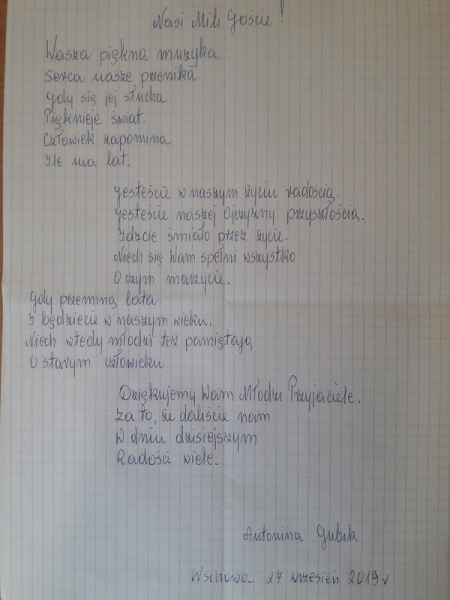 Nasi Mili Goście!
Wasza piękna muzyka
Serca nasze przenika
Gdy się jej słucha
Pięknieje świat.
Człowiek zapomina
Ile ma lat.
Jesteście w naszym życiu radością.
Jesteście naszej Ojczyzny przyszłością.
Idzcie śmiało przez życie.
Niech się Wam spełni wszystko
O czym marzycie.
Gdy przeminą lata.
I będziecie w naszym wieku.
Niech wtedy młodzi też pamiętają
O starym człowieku
Dziękujemy Wam Młodzi Przyjaciele.
Za to, że daliście nam
W dniu dzisiejszym
Radości wiele.
Antonina Gubik
Wschowa 27 wrzesień 2019 r